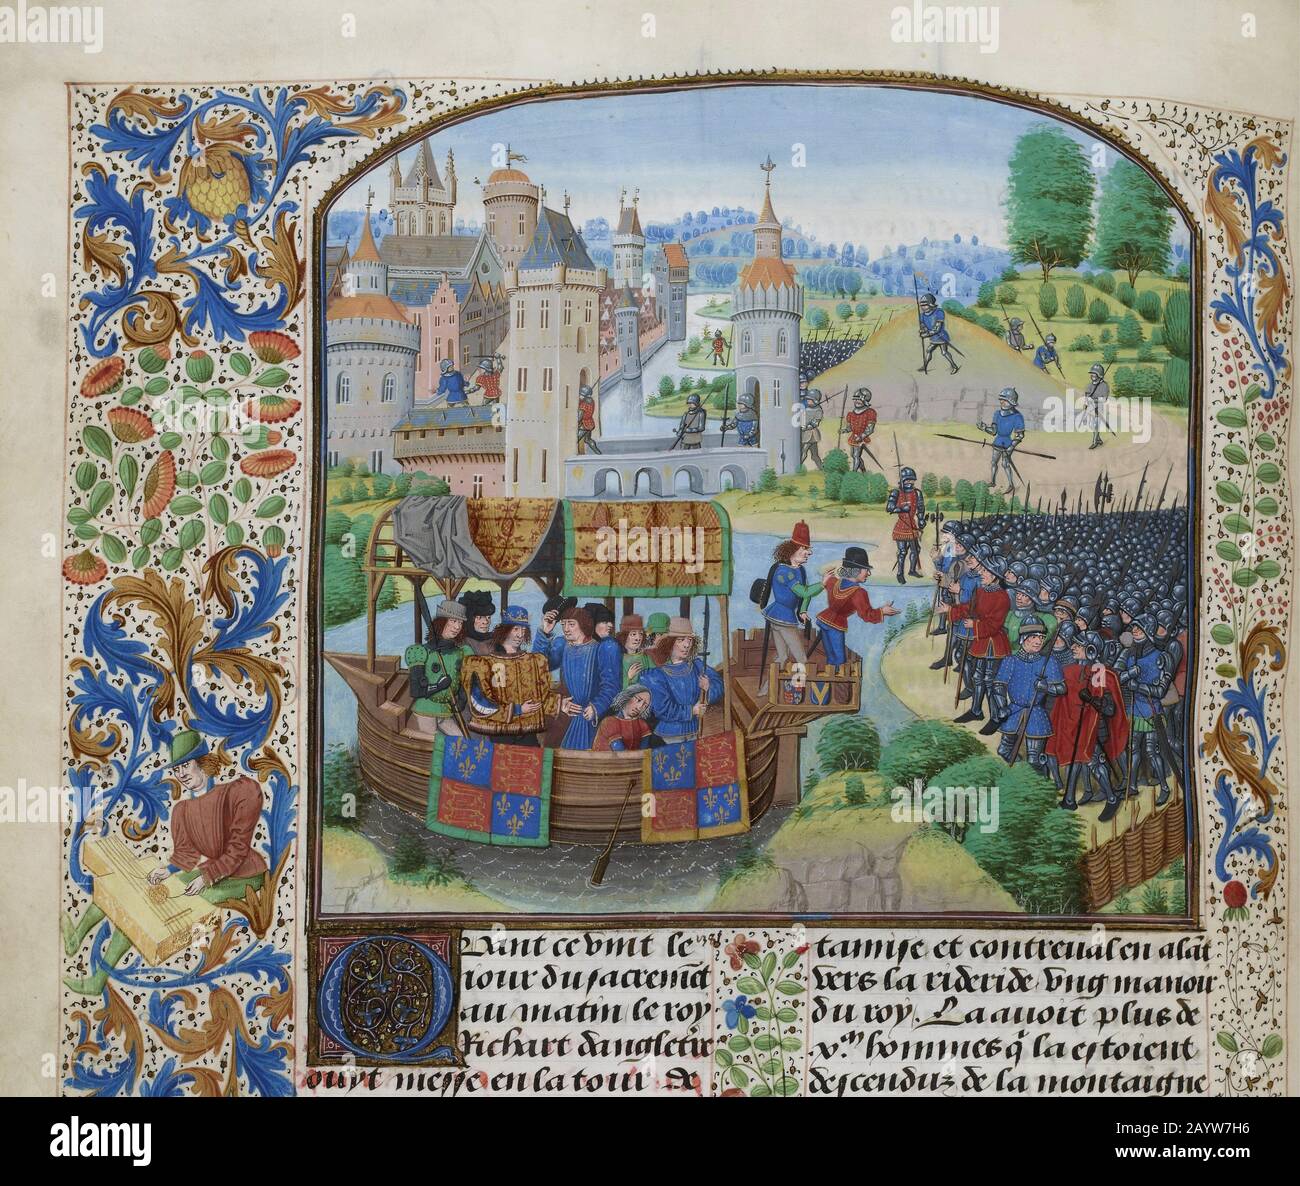 Quant ce vint le
iour du sacrement
au matin le roy
Richart dangleterre
ouyt messe en la tour de
tamise et contreval en alant
vers la rideride vng manoir
du roy. La auoit plus de
hommes q̃ la estoient
descenduz de la montaigne
alamy
Image ID: 2AYW7H6
www.alamy.com